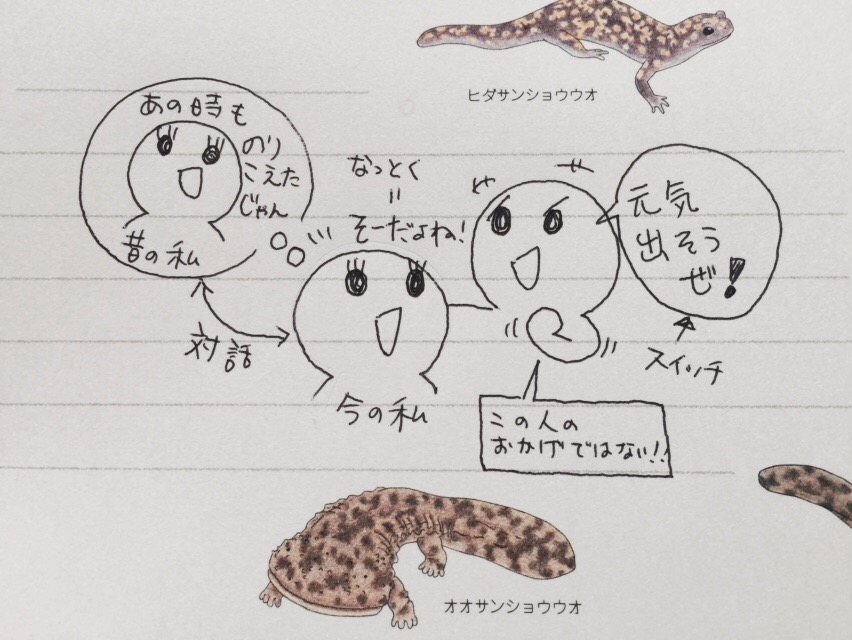 ヒダサンショウウオ
あの時も
のり
こえた
じゃん
昔の私
なっとく
=
そーだよね!
元気
出そう
ぜ!
対話
スイッチ
今の私
この人の
おかげではない!!
オオサンショウウオ